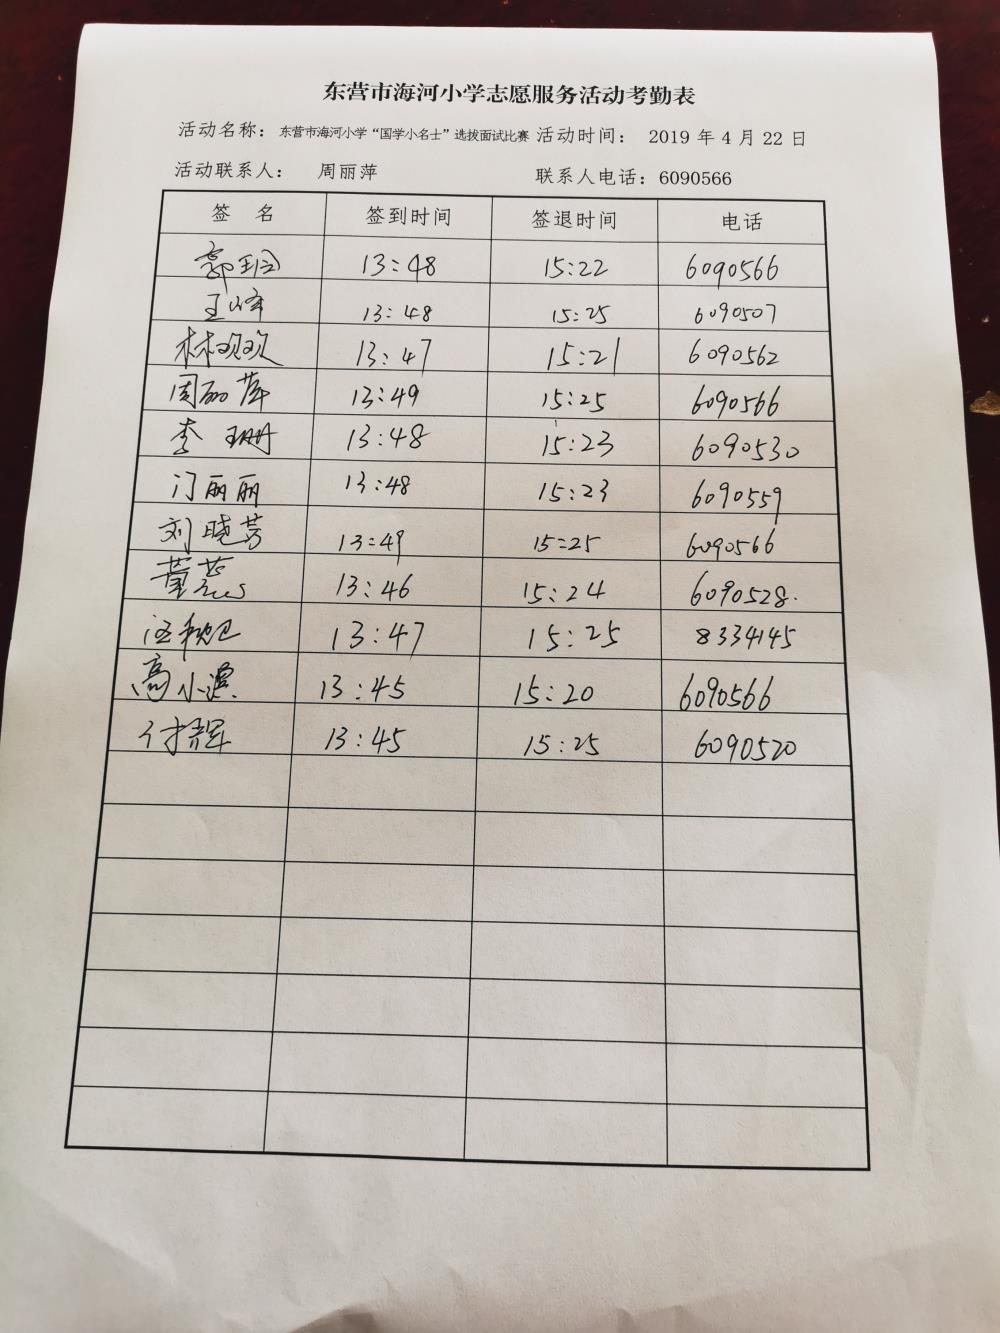 东营市海河小学志愿服务活动考勤表
活动名称：东营市海河小学“国学小名士”选拔面试比赛 活动时间： 2019 年 4 月 22 日
活动联系人： 周丽萍 联系人电话：6090566
签 名 签到时间 签退时间 电话
郭 13:48 15:22 6090566
王峰 13:48 15:25 6090507
林欢欢 13:47 15:21 6090562
周丽萍 13:49 15:25 6090566
李珊 13:48 15:23 6090530
门丽丽 13:48 15:23 6090559
刘晓芳 13:49 15:25 6090566
董蕊 13:46 15:24 6090528.
汪秋 13:47 15:25 8334145
高小 13:45 15:20 6090566
付辉 13:45 15:25 6090520